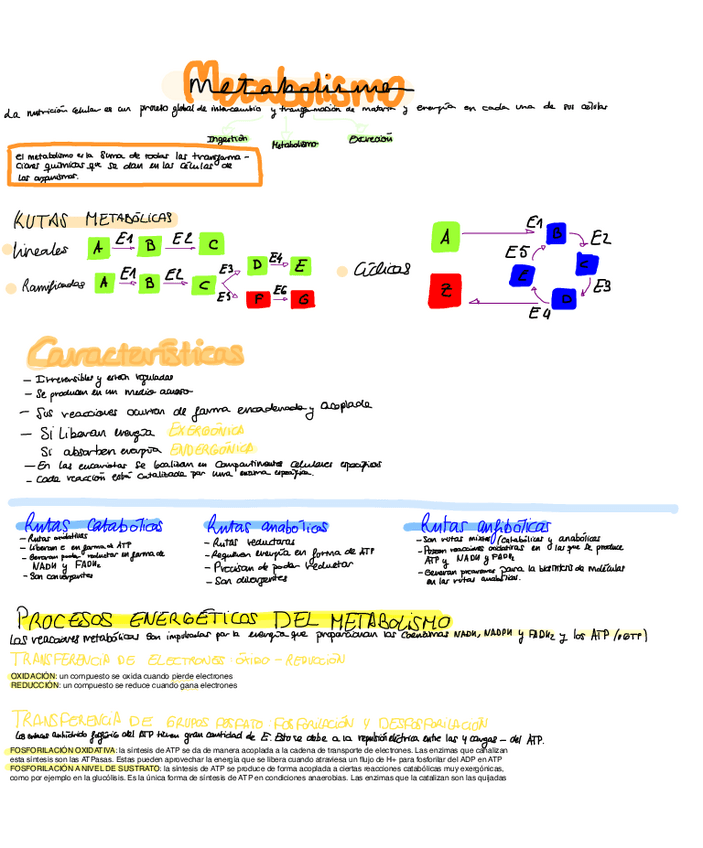 Metabolismo
La nutrición celular es un proceso global de intercambio y transformación de materia y energía en cada una de sus células
Ingestión Metabolismo Excreción
El metabolismo es la suma de todas las transforma-
ciones químicas que se dan en las células de
los organismos.
RUTAS METABÓLICAS
Lineales A E1 B E2 C
Ramificadas A E1 B E2 C E3 D E4 E
E5 F E6 G
Cíclicas A E1 B E2 C E3 D E4 Z
E E5
Características
- Irreversibles y están reguladas
- Se producen en un medio acuoso
- Sus reacciones ocurren de forma encadenada y acoplada
- Si liberan energía EXERGÓNICA
Si absorben energía ENDERGÓNICA
- En las eucariotas se localizan en compartimentos celulares específicos
- Cada reacción está catalizada por una enzima específica.
Rutas catabólicas
- Rutas oxidativas
- Liberan e en forma de ATP
- Generan poder reductor en forma de
NADH y FADH2
- Son convergentes
Rutas anabólicas
- Rutas reductoras
- Requieren energía en forma de ATP
- Precisan de poder reductor
- Son divergentes
Rutas anfibólicas
- Son rutas mixtas (catabólicas y anabólicas
- Poseen reacciones oxidativas en las que se produce
ATP y NADH y FADH2
- Generan precursores para la biosíntesis de moléculas
en las rutas anabólicas.
PROCESOS ENERGÉTICOS DEL METABOLISMO
Las reacciones metabólicas son impulsadas por la energía que proporcionan las coenzimas NADH, NADPH y FADH2 y los ATP
TRANSFERENCIA DE ELECTRONES: ÓXIDO-REDUCCIÓN
OXIDACIÓN: un compuesto se oxida cuando pierde electrones
REDUCCIÓN: un compuesto se reduce cuando gana electrones
TRANSFERENCIA DE GRUPOS FOSFATO: FOSFORILACIÓN Y DESFOSFORILACIÓN
Los enlaces anhídrido del ATP tienen gran cantidad de E. Esto se debe a la repulsión eléctrica entre las 4 cargas - del ATP.
FOSFORILACIÓN OXIDATIVA: la síntesis de ATP se da de manera acoplada a la cadena de transporte de electrones. Las enzimas que canalizan
esta síntesis son las ATPasas. Estas pueden aprovechar la energía que se libera cuando atraviesa un flujo de H+ para fosforilar del ADP en ATP
FOSFORILACIÓN A NIVEL DE SUSTRATO: la síntesis de ATP se produce de forma acoplada a ciertas reacciones catabólicas muy exergónicas,
como por ejemplo en la glucólisis. Es la única forma de síntesis de ATP en condiciones anaerobias. Las enzimas que la catalizan son las quijadas